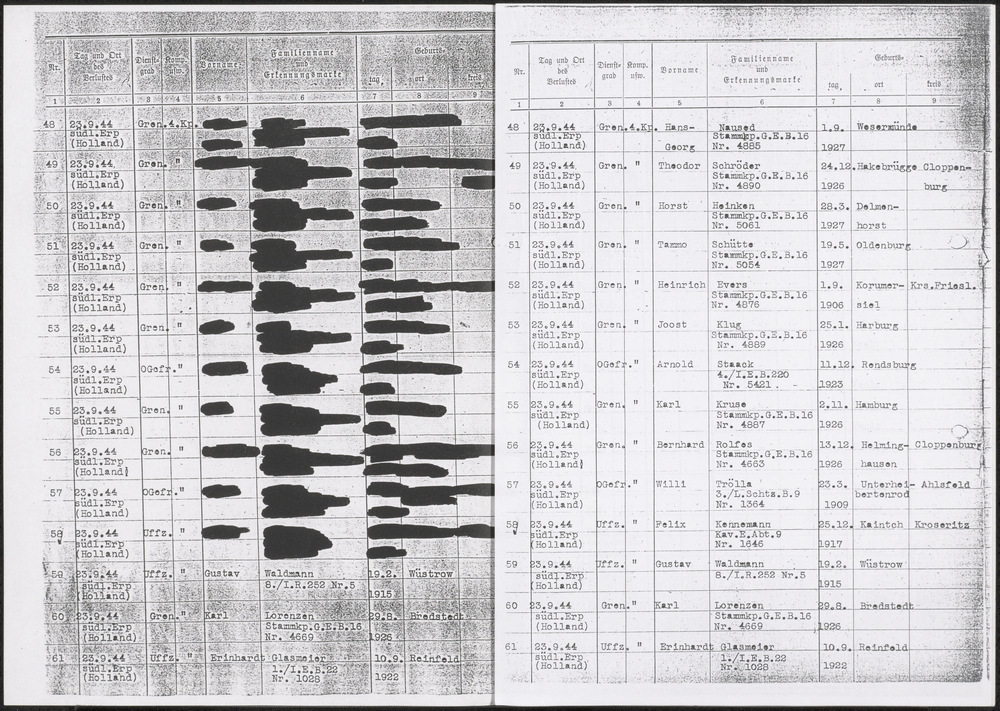 Nr. Tag und Ort des Verlustes Dienst-grad Komp. usw. Vorname Familienname und Erkennungsmarke Geburts-
tag, ort kreis
1 2 3 4 5 6 7 8 9
48 23.9.44 Gren.4.Kp.
südl.Erp
(Holland)
49 23.9.44 Gren. "
südl.Erp
(Holland)
50 23.9.44 Gren. "
südl.Erp
(Holland)
51 23.9.44 Gren. "
südl.Erp
(Holland)
52 23.9.44 Gren. "
südl.Erp
(Holland)
53 23.9.44 Gren. "
südl.Erp
(Holland)
54 23.9.44 OGefr."
südl.Erp
(Holland)
55 23.9.44 Gren. "
südl.Erp
(Holland)
56 23.9.44 Gren. "
südl.Erp
(Holland)
57 23.9.44 OGefr."
südl.Erp
(Holland)
58 23.9.44 Uffz. "
südl.Erp
(Holland)
59 23.9.44 Uffz. " Gustav Waldmann 19.2. Wüstrow
südl.Erp 8./I.R.252 Nr.5
(Holland) 1915
60 23.9.44 Gren." Karl Lorenzen 29.8. Bredstedt
südl.Erp Stammkp.G.E.B.16
(Holland) Nr. 4669 1926
61 23.9.44 Uffz. " Erinhardt Glasmeier 10.9. Reinfeld
südl.Erp 1./I.E.B.22
(Holland) Nr. 1028 1922
Nr. Tag und Ort des Verlustes Dienst-grad Komp. usw. Vorname Familienname und Erkennungsmarke Geburts-
tag, ort kreis
1 2 3 4 5 6 7 8 9
48 23.9.44 Gren.4.Kp. Hans- Naused 1.9. Wesermünde
südl.Erp Stammkp.G.E.B.16
(Holland) Georg Nr. 4885 1927
49 23.9.44 Gren. " Theodor Schröder 24.12.Hakebrügge Cloppen-
südl.Erp Stammkp.G.E.B.16
(Holland) Nr. 4890 1926 burg
50 23.9.44 Gren. " Horst Heinken 28.3. Delmen-
südl.Erp Stammkp.G.E.B.16
(Holland) Nr. 5061 1927 horst
51 23.9.44 Gren. " Tammo Schütte 19.5. Oldenburg
südl.Erp Stammkp.G.E.B.16
(Holland) Nr. 5054 1927
52 23.9.44 Gren. " Heinrich Evers 1.9. Korumer- Krs.Friesl.
südl.Erp Stammkp.G.E.B.16
(Holland) Nr. 4876 1906 siel
53 23.9.44 Gren. " Joost Klug 25.1. Harburg
südl.Erp Stammkp.G.E.B.16
(Holland) Nr. 4889 1926
54 23.9.44 OGefr." Arnold Staack 11.12. Rendsburg
südl.Erp 4./I.E.B.220
(Holland) Nr. 5421 . 1923
55 23.9.44 Gren. " Karl Kruse 2.11. Hamburg
südl.Erp Stammkp.G.E.B.16
(Holland) Nr. 4887 1926
56 23.9.44 Gren. " Bernhard Rolfes 13.12. Helming- Cloppenburg
südl.Erp Stammkp.G.E.B.16
(Holland) Nr. 4663 1926 hausen
57 23.9.44 OGefr." Willi Trölla 23.3. Unterhei- Ahlsfeld
südl.Erp 3./L.Schtz.B.9 bertenrod
(Holland) Nr. 1364 1909
58 23.9.44 Uffz. " Felix Kennemann 25.12. Kaintch Kroseritz
südl.Erp Kav.E.Abt.9
(Holland) Nr. 1646 1917
59 23.9.44 Uffz. " Gustav Waldmann 19.2. Wüstrow
südl.Erp 8./I.R.252 Nr.5
(Holland) 1915
60 23.9.44 Gren." Karl Lorenzen 29.8. Bredstedt
südl.Erp Stammkp.G.E.B.16
(Holland) Nr. 4669 1926
61 23.9.44 Uffz. " Erinhardt Glasmeier 10.9. Reinfeld
südl.Erp 1./I.E.B.22
(Holland) Nr. 1028 1922